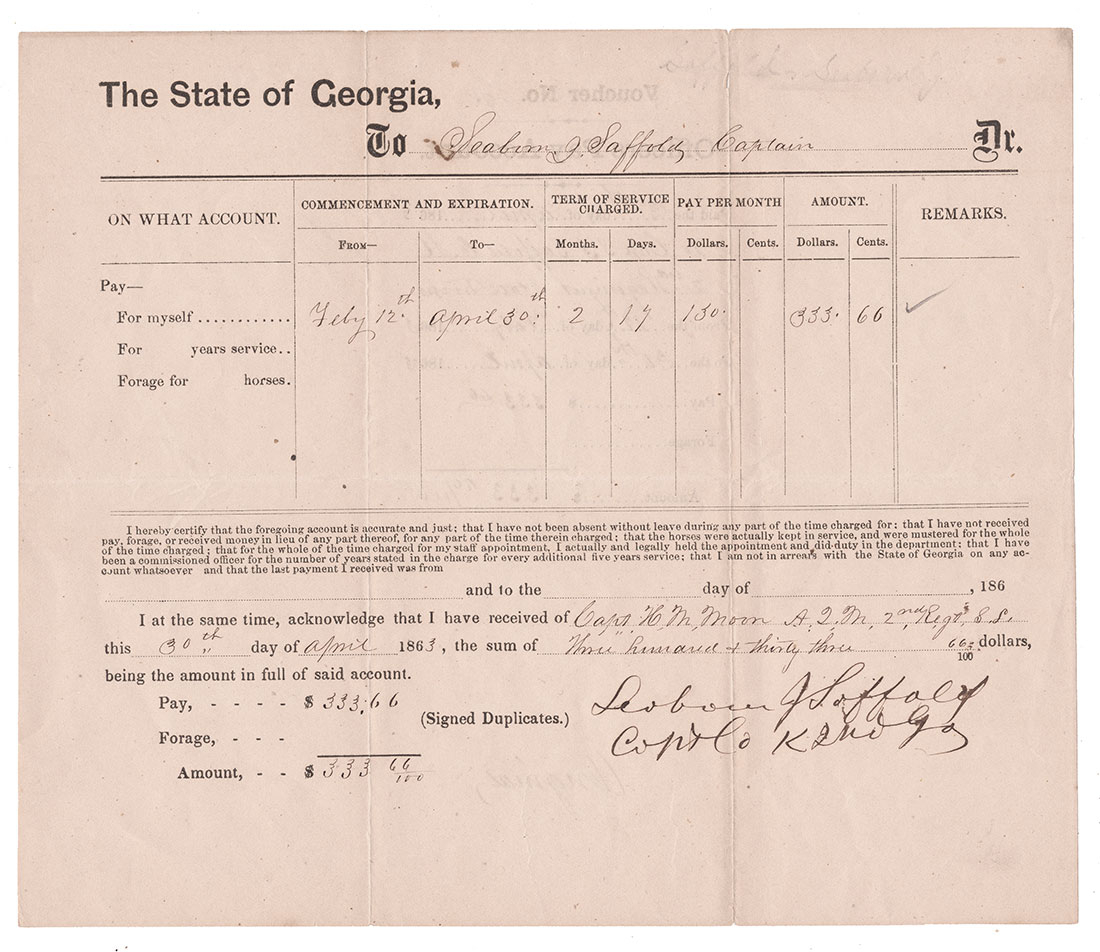 The State of Georgia,
To Seaborn J. Saffold, Captain Dr.
ON WHAT ACCOUNT. COMMENCEMENT AND EXPIRATION. TERM OF SERVICE CHARGED. PAY PER MONTH AMOUNT. REMARKS.
FROM— To— Months. Days. Dollars. Cents. Dollars. Cents.
Pay—
For myself ............ Feby 12th. April 30th. 2 17 130. 333. 66 ✓
For years service..
Forage for horses.
I hereby certify that the foregoing account is accurate and just; that I have not been absent without leave during any part of the time charged for; that I have not received
pay, forage, or received money in lieu of any part thereof, for any part of the time therein charged; that the horses were actually kept in service, and were mustered for the whole
of the time charged; that for the whole of the time charged for my staff appointment, I actually and legally held the appointment and did duty in the department; that I have
been a commissioned officer for the number of years stated in the charge for every additional five years service; that I am not in arrears with the State of Georgia on any ac-
count whatsoever and that the last payment I received was from
and to the day of , 186
I at the same time, acknowledge that I have received of Capt H. M. Moon A. Q. M. 2nd Regt S. S.
this 30th day of April 1863, the sum of Three hundred + thirty three 66/100 dollars,
being the amount in full of said account.
Pay, - - - - $ 333.66
(Signed Duplicates.) Seaborn J Saffold
Forage, - - -
Capt Co K 2nd Ga
Amount, - - $ 333 66/100